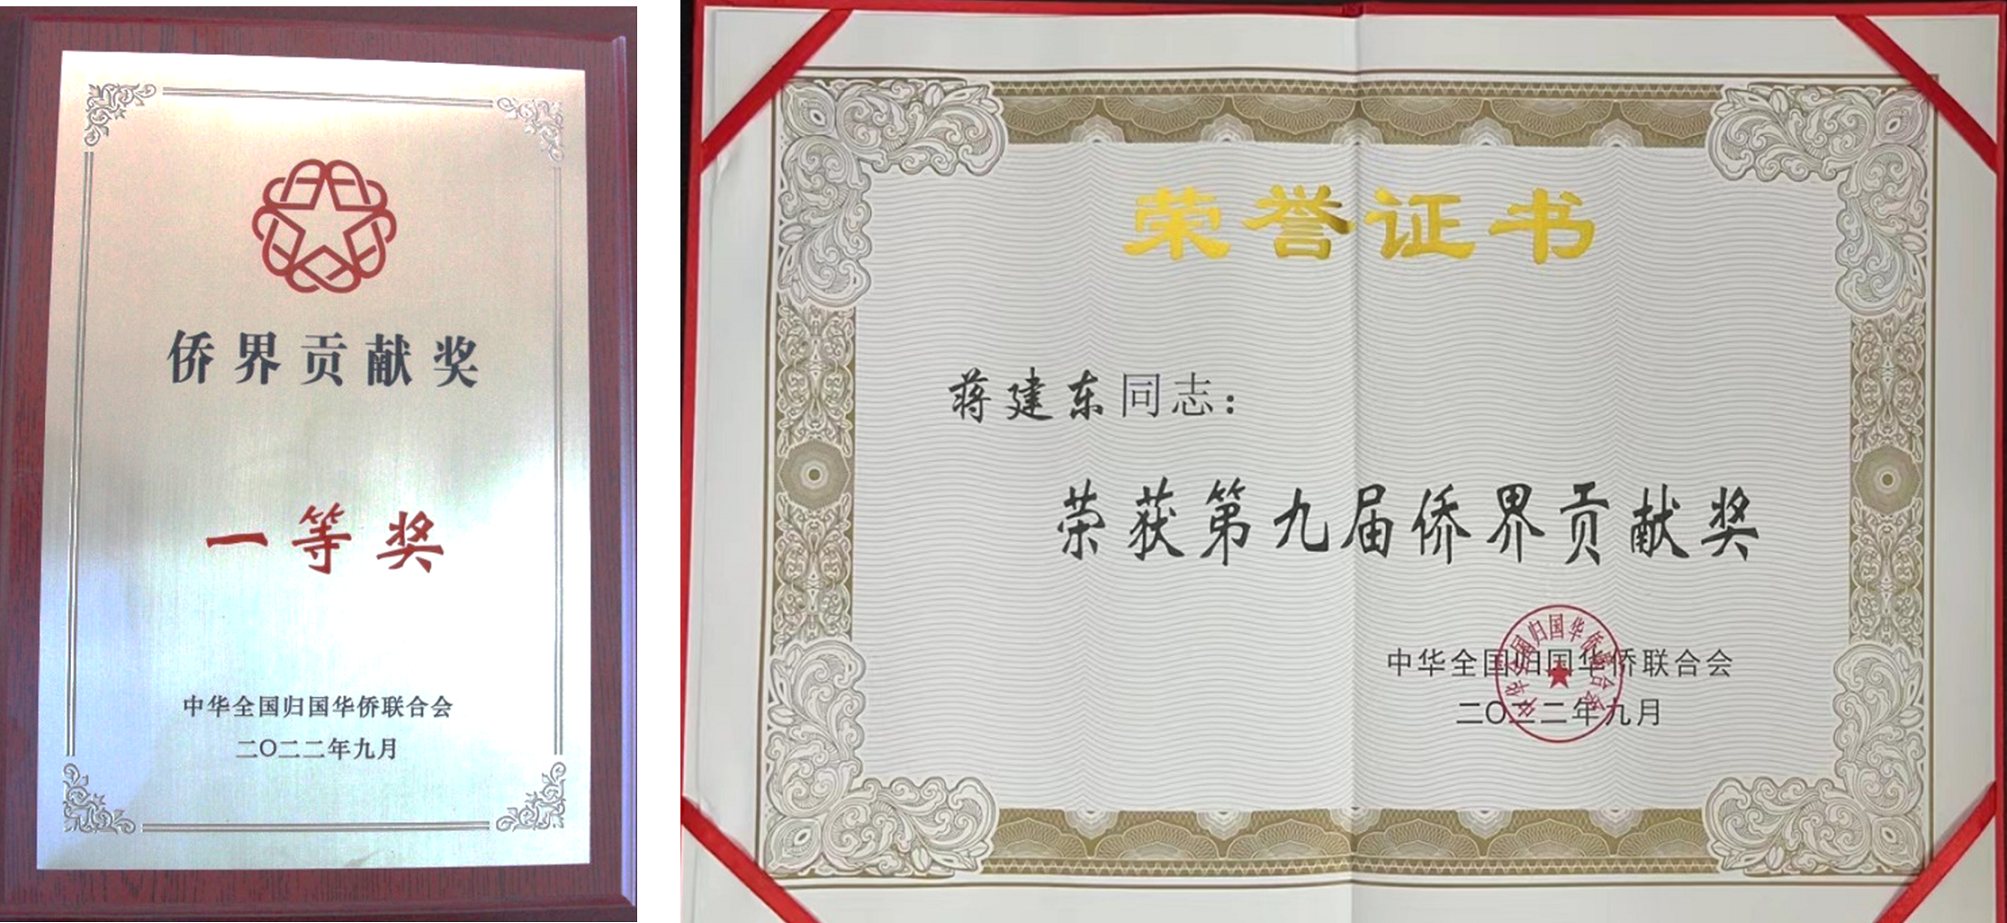 侨界贡献奖
一等奖
中华全国归国华侨联合会
二〇二二年九月
荣誉证书
蒋建东同志：
荣获第九届侨界贡献奖
中华全国归国华侨联合会
二〇二二年九月
中华全国归国华侨联合会